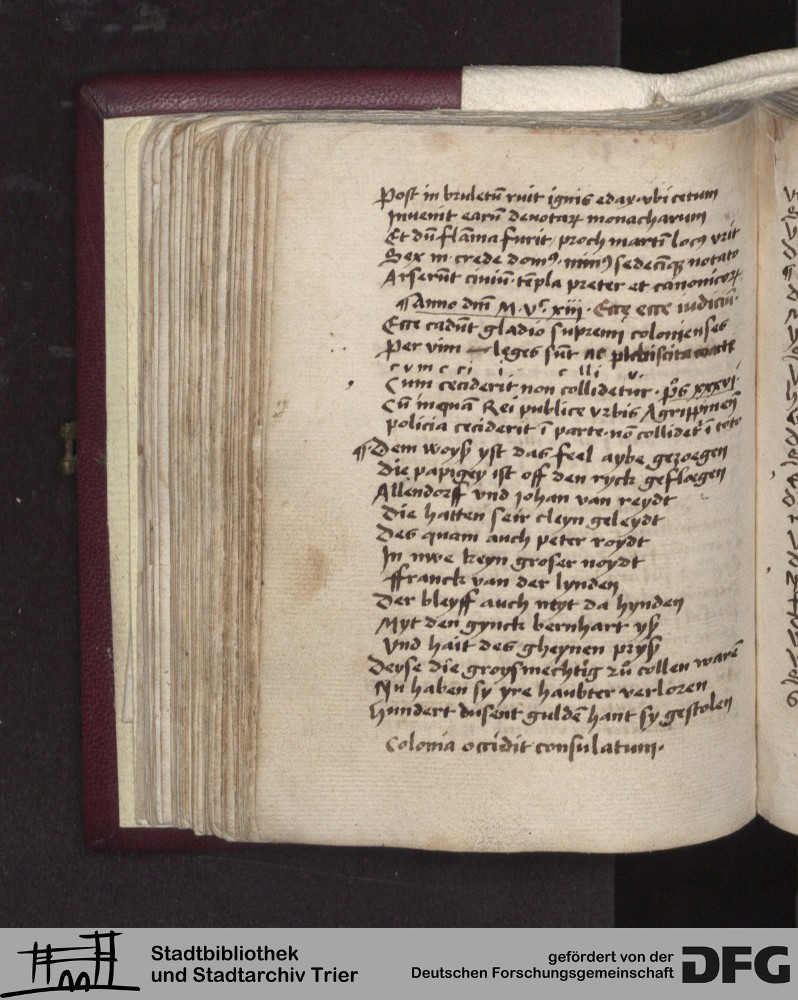 Post in bruletū ruit ignis edax ubi cetum
Invenit earū devotaꝝ monacharum
Et dū flāma furit proch martī locꝰ urit
Sex m crede domꝰ sedecīqꝫ notato
Arserūt civiū tēpla preter et canonicoꝝ
¶ Anno dnī M. Vᶜ. xiii. Ecce ecce iudiciū
Ecce cadūt gladio supremi colonienses
Per vim leges sūt ac plebiscita
c v m c ci i c lli v
Cum ceciderit non collidetur. ps xxxvi
Cū inquā Rei publice urbis Agrippinen̄
policia ceciderit ī parte nō collidet ī toto
¶ Dem woyß yst das feel aybe gezoegen
Die papigey ist off den ryck geflaegen
Allendorff und johan van reydt
Die hatten seir cleyn geleydt
Des quam auch peter roydt
In nwe keyn groser noydt
ffranck van der lynden
Der bleyff auch neyt da hynden
Myt den gynck bernhart yß
Und hait des gheynen pryß
Deyse die groysmechtig zū collen warē
Nu haben sy yre haubter verloren
Hundert dusent guldē hant sy gestolen
Colonia occidit consulatum.
Stadtbibliothek
und Stadtarchiv Trier
gefördert von der
Deutschen Forschungsgemeinschaft
DFG